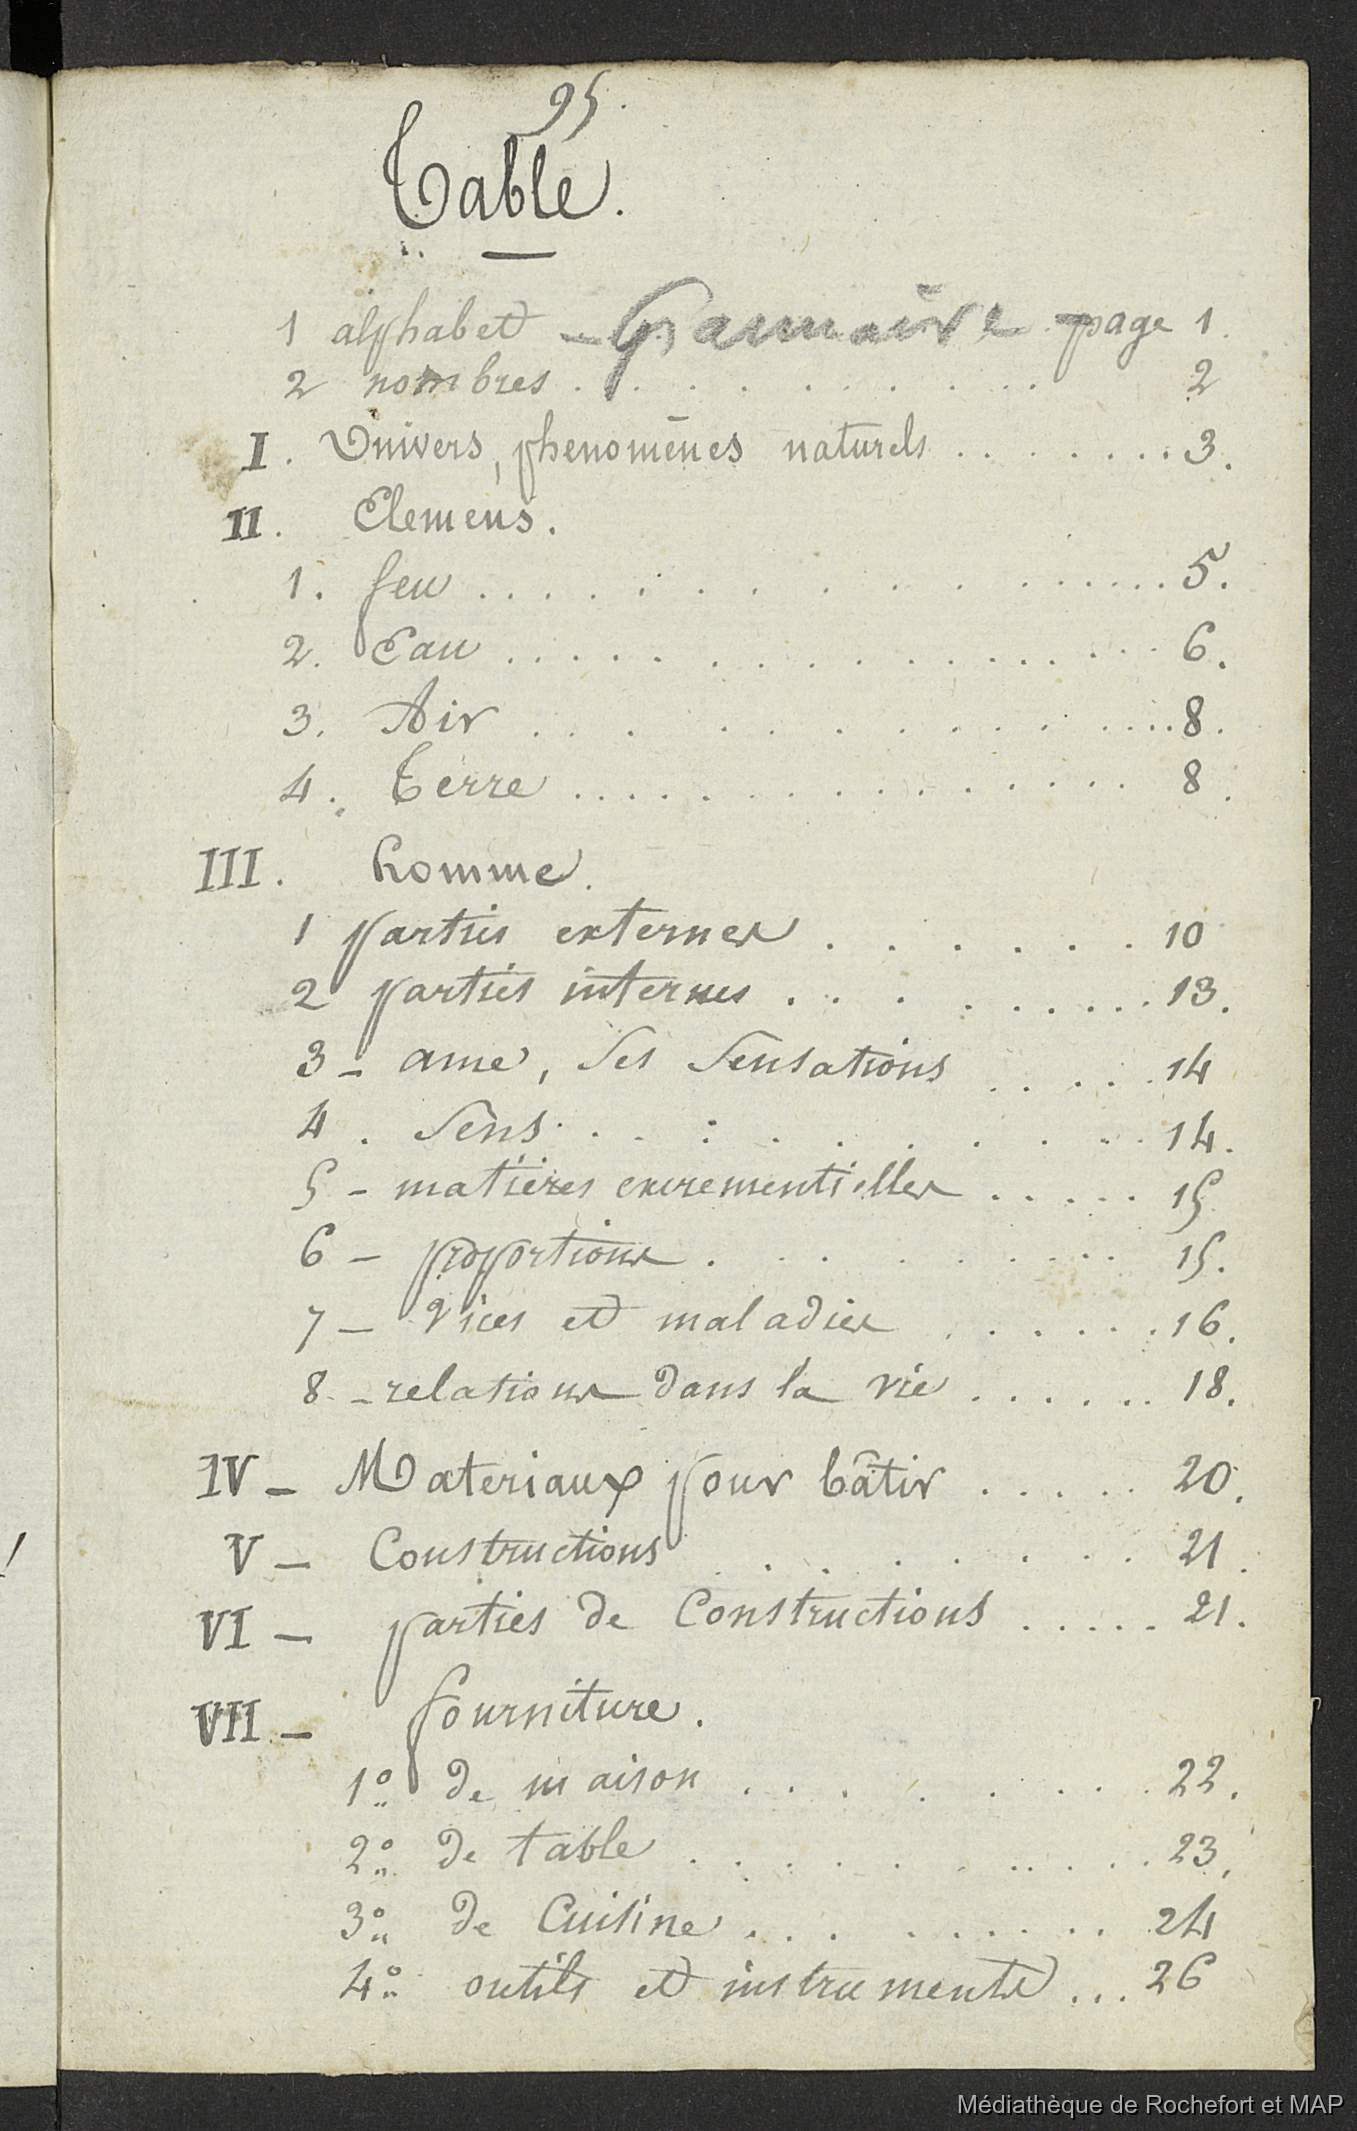 95.
Table.
1 alphabet - Grammaire - page 1.
2 nombres . . . . . . . . . . 2
I. Univers, phenomènes naturels . . . . . . . . 3.
II. Elemens.
1. feu . . . . . . . . . . . . . . . 5.
2. Eau . . . . . . . . . . . . . . . 6.
3. Air . . . . . . . . . . . . . . . 8.
4. Terre . . . . . . . . . . . . . . 8.
III. homme.
1 parties externes . . . . . . 10
2 parties internes . . . . . . . . . 13.
3 - ame, ses sensations . . . . . 14
4. Sens . . . . . . . . . . 14.
5 - matières excrementielles . . . . . 15
6 - proportions . . . . . . . . . 15.
7 - vices et maladies . . . . . . 16.
8 - relations dans la vie . . . . . . 18.
IV - Materiaux pour bâtir . . . . . 20.
V - Constructions . . . . . . . 21.
VI - parties de Constructions . . . . . 21.
VII - fourniture.
1º de maison . . . . . . . . 22.
2º de table . . . . . . . . . . 23.
3º de Cuisine . . . . . . . . 24
4º outils et instruments . . . 26
Médiathèque de Rochefort et MAP